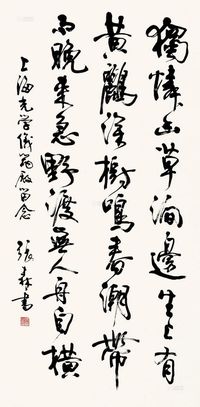 獨憐幽草澗邊生上有
黃鸝深樹鳴春潮帶
雨晚來急野渡無人舟自橫
上海光学儀器廠留念
張森書